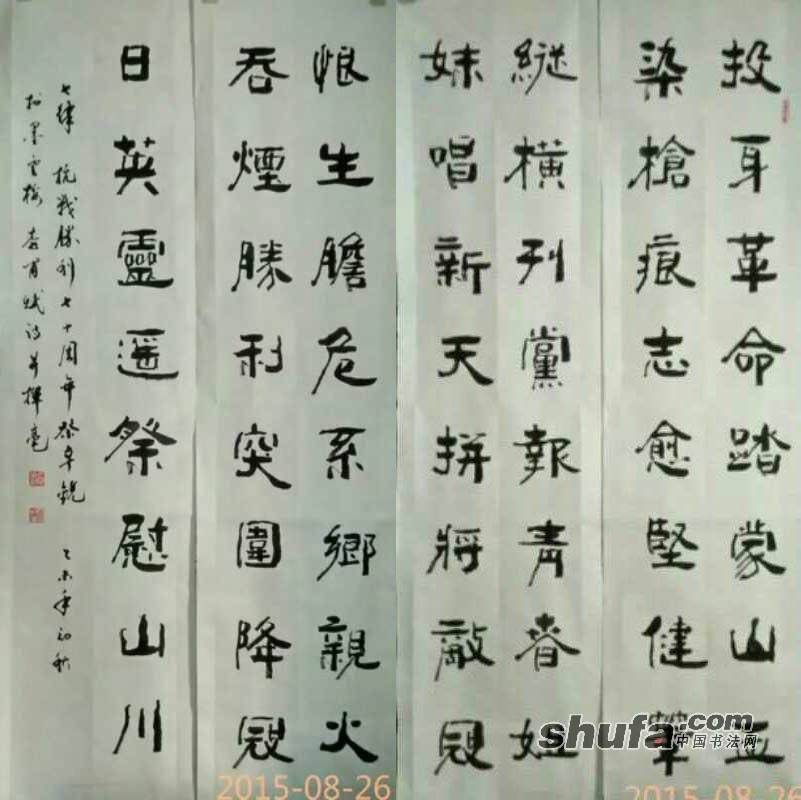 投身革命踏蒙山血
染槍痕志愈堅健筆
縱橫刊黨報青春姐
妹唱新天拼將敵寇
恨生膽危系鄉親火
吞煙勝利突圍降寇
日英靈遥祭慰山川
七律 抗战胜利七十周年祭辛銳 乙未年初秋
於墨雲楼 李 賦诗并揮毫
shufa.com
中国书法网
2015-08-26
2015-08-26